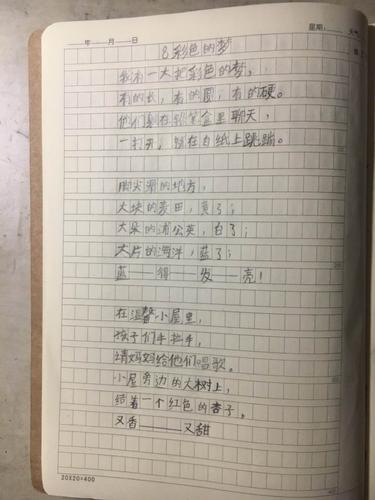 年 月 日
星期: 天气
8 彩色的梦
我有一大把彩色的梦,
有的长,有的圆,有的硬。
他们躺在铅笔盒里聊天,
一打开,就在白纸上跳蹦。
脚尖滑的地方,
大块的麦田,黄了;
大朵的浦公英,白了;
大片的海洋,蓝了;
蓝——得——发——亮!
在温馨小屋里,
孩子们手拉手,
请妈妈给他们唱歌。
小屋旁边的大树上,
结着一个红色的杏子。
又香————又甜
20X20=400